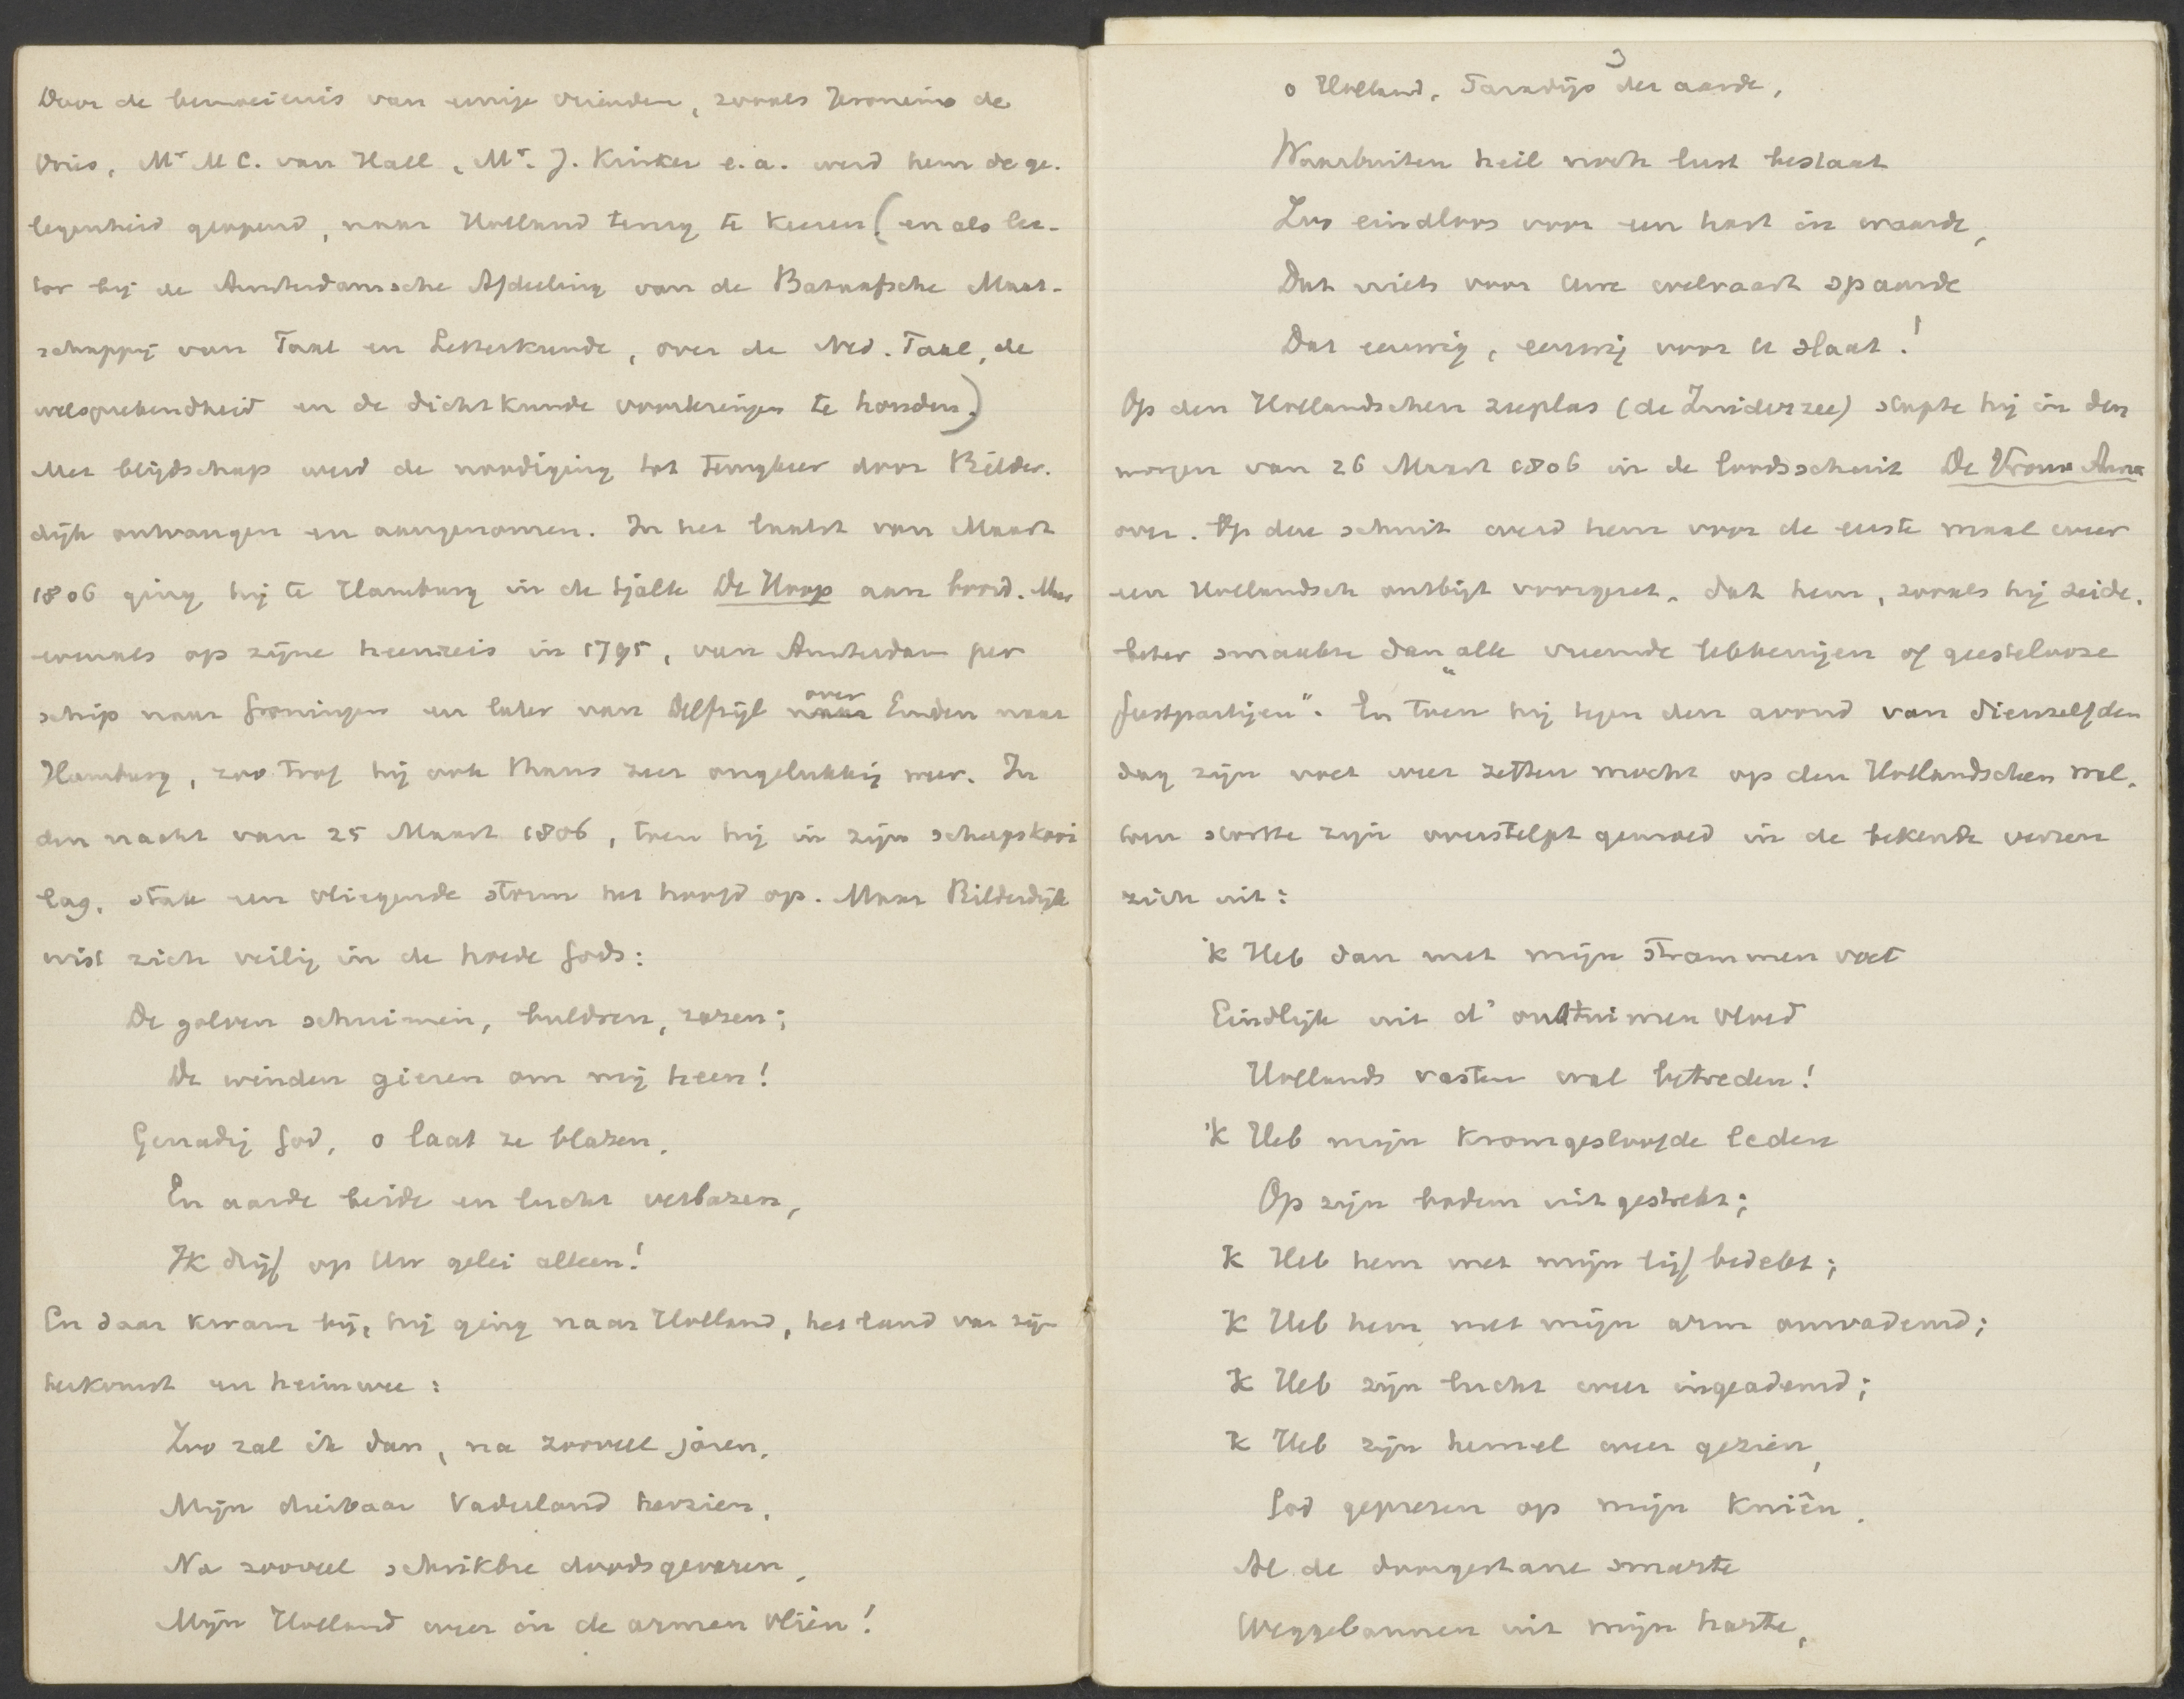 Door de bemoeienis van eenige vrienden, zooals Jeronimo de
Vries, Mr M C. van Hall, Mr. J. Kinker e.a. werd hem de ge-
legenheid geopend, naar Holland terug te keeren (en als lec-
tor bij de Amsterdamsche Afdeeling van de Bataafsche Maat-
schappij van Taal en Letterkunde, over de Ned. Taal, de
welsprekendheid en de dichtkunde voorlezingen te houden.)
Met blijdschap werd de noodiging tot terugkeer door Bilder-
dijk ontvangen en aangenomen. In het laatst van Maart
1806 ging hij te Hamburg in de tjalk De Hoop aan boord. Maar
evenals op zijne heenreis in 1795, van Amsterdam per
schip naar Groningen en later van Delfzijl over Emden naar
Hamburg, zoo trof hij ook thans zeer ongelukkig weer. In
den nacht van 25 Maart 1806, toen hij in zijn scheepskooi
lag, stak een vliegende storm het hoofd op. Maar Bilderdijk
wist zich veilig in de hoede Gods:
De golven schuimen, buldren, razen;
De winden gieren om mij heen!
Genadig God, o laat ze blazen,
En aarde beide en lucht verbazen,
Ik drijf op Uw gelei alleen!
En daar kwam hij, hij ging naar Holland, het land van zijn
herkomst en heimwee:
Zoo zal ik dan, na zooveel jaren,
Mijn dierbaar Vaderland herzien,
Na zooveel schrikbre doodsgevaren,
Mijn Holland weer in de armen vliên!
3
o Holland, Paradijs der aarde,
Waarbuiten heil noch lust bestaat
Zoo eindloos voor een hart in waarde,
Dat niets voor uwe welvaart spaarde
Dat eeuwig, eeuwig voor U slaat!
Op den Hollandschen zeeplas (de Zuiderzee) stapte hij in den
morgen van 26 Maart 1806 in de loodsschuit De Vrouw Anna
over. Op deze schuit werd hem voor de eerste maal weer
een Hollandsch ontbijt voorgezet, dat hem, zooals hij zeide,
beter smaakte dan "alle vreemde lekkernijen of geestelooze
feestpartijen". En toen hij tegen den avond van dienzelfden
dag zijn voet weer zetten mocht op den Hollandschen wal,
toen stortte zijn overstelpt gemoed in de bekende verzen
zich uit:
'k Heb dan met mijn strammen voet
Eindlijk uit d' onstuimen vloed
Hollands vasten wal betreden!
'k Heb mijn kromgesloofde leden
Op zijn bodem uitgestrekt;
'k Heb hem met mijn lijf bedekt;
'k Heb hem met mijn arm omvademd;
'k Heb zijn lucht weer ingeademd;
'k Heb zijn hemel weer gezien,
God geprezen op mijn kniên,
Al de doorgestane smarte
Weggebannen uit mijn harte,